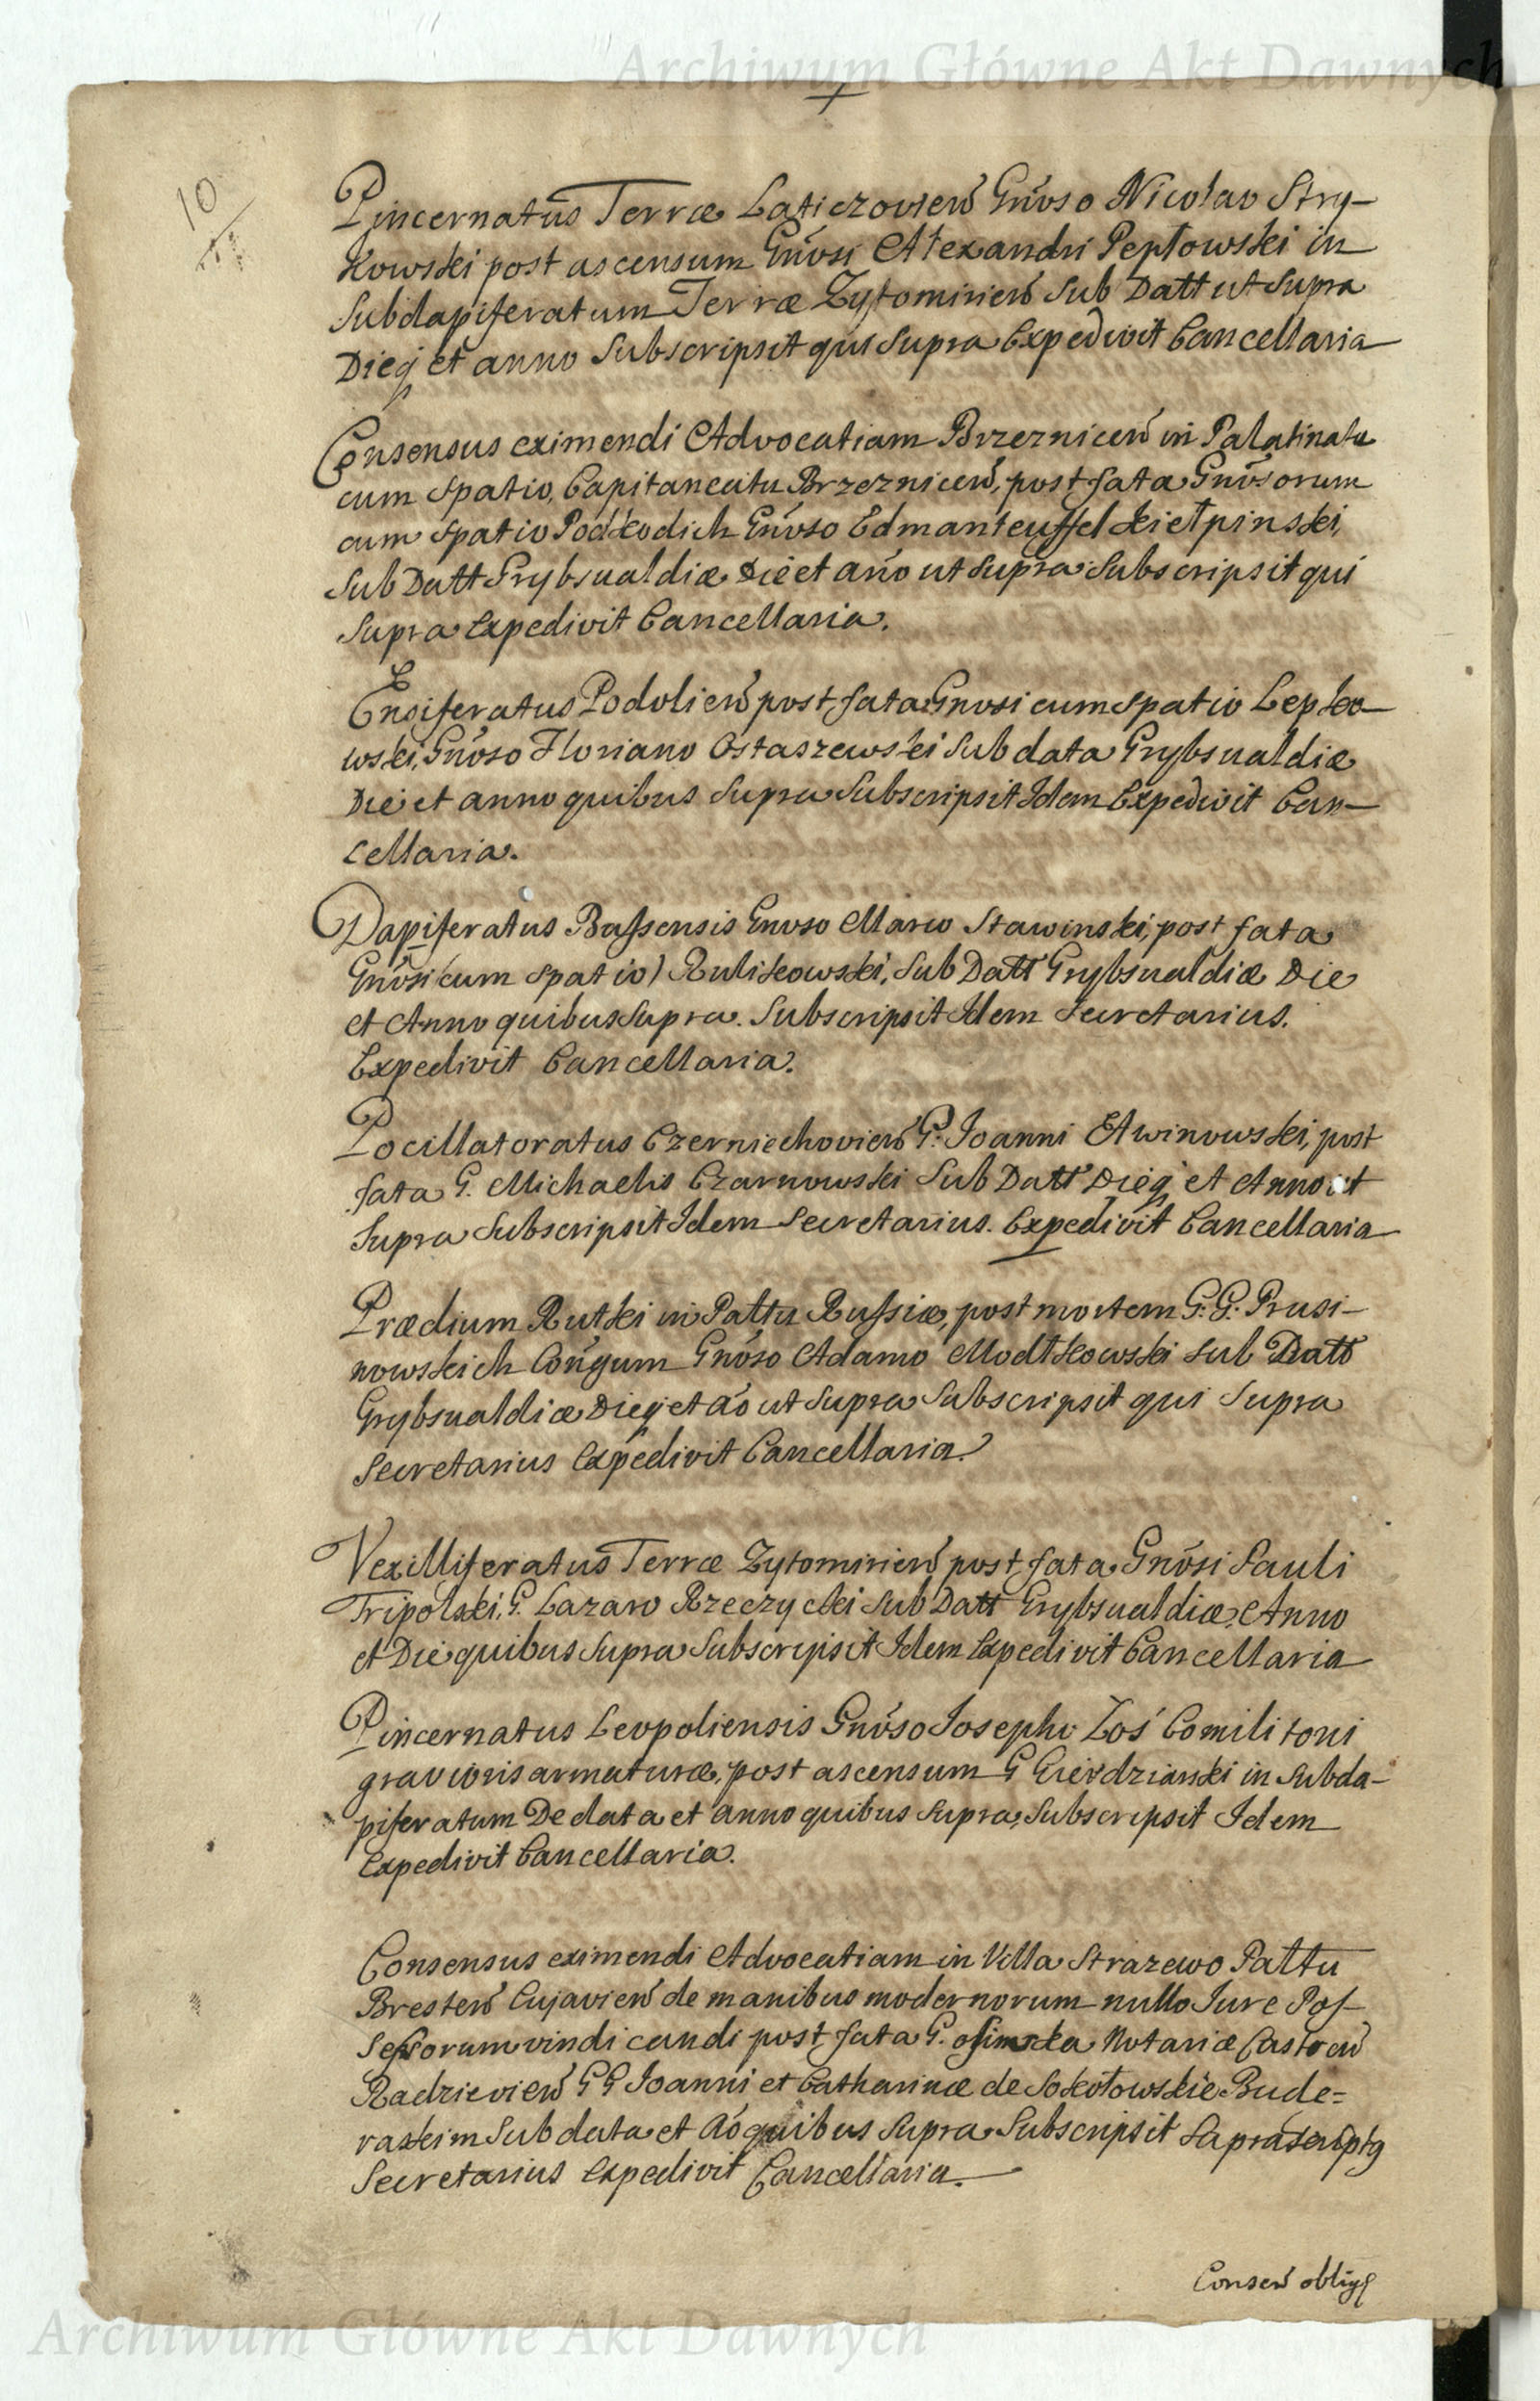 Archiwum Główne Akt Dawnych
10
Pincernatus Terræ Laticzovień Gnõso Nicolao Stry-
kowski post ascensum Gnõsi Alexandri Peptowski in
Subdapiferatum Terræ Zytomirień Sub Datt ut Supra
Dieq et anno Subscripsit qui Supra Expedivit Cancellaria
Consensus eximendi Advocatiam Brzeznicen̄ in Palatinatu
cum spatio, Capitaneatu Brzeznicen̄, post fata Gnõsorum
cum spatio Podkodich Gnõso Edmanteuffel Kiełpinski,
Sub Datt Grybsualdiæ Die et año ut Supra Subscripsit qui
Supra Expedivit Cancellaria.
Ensiferatus Podolień post fata Gnosi cum spatio Lepko-
wski, Gnõso Floriano Ostaszewski Sub data Grybsualdiæ
Die et anno quibus Supra Subscripsit Idem Expedivit Can-
cellaria.
Dapiferatus Bassensis Gnoso Marco Stawinski, post fata
Gnõsi (cum spatio) Rulikowski, Sub Datt Grybsualdiæ Die
et Anno quibus Supra. Subscripsit Idem Secretarius.
Expedivit Cancellaria.
Pocillatoratus Czerniechovień G: Joanni Awinowski, post
fata G. Michaelis Czarnowski Sub Datt Dieq et Anno ut
Supra Subscripsit Idem Secretarius. Expedivit Cancellaria
Prædium Rutki in Pałtu Russiæ, post mortem G: G: Prusi-
nowskich Coñgum Gnõso Adamo Modłkowski Sub Datt
Grybsualdiæ Dieq et Aõo ut Supra Subscripsit qui Supra
Secretarius Expedivit Cancellaria.
Vexilliferatus Terræ Zytomirień post fata Gnõsi Pauli
Tripolski, G. Lazaro Rzeczycki Sub Datt Grybsualdiæ, Anno
et Die quibus Supra Subscripsit Idem Expedivit Cancellaria
Pincernatus Leopoliensis Gnõso Josepho Łoś Comilitoni
gravioris armaturæ, post ascensum G Gierdzianski in Subda-
piferatum De data et anno quibus Supra, Subscripsit Idem
Expedivit Cancellaria.
Consensus eximendi Advocatiam in Villa Strazewo Pałtu
Bresteń Cujavień de manibus modernorum nullo Jure Pos-
sessorum vindicandi post fata G. Notariæ Castreń
Radzieivień GG Joanni et Catharinæ de Sokołowskie Bude=
raskim Sub data et Aõ quibus Supra Subscripsit Suprascriptq
Secretarius Expedivit Cancellaria.
Conseń oblig
Archiwum Główne Akt Dawnych